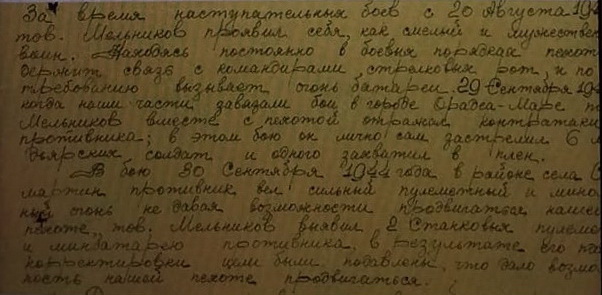 За время наступательных боев с 20 Августа 194
тов. Мельников проявил себя, как смелый и мужествен
воин. Находясь постоянно в боевых порядках пехот
держит связь с командирами стрелковых рот, и по
требованию вызывает огонь батареи. 29 Сентября 194
когда наши части завязали бои в городе Орадеа-Маре т
Мельников вместе с пехотой отражал контратаки
противника; в этом бою он лично сам застрелил 6 м
дьярских солдат и одного захватил в плен.
В бою 30 Сентября 1944 года в районе села С
мартин противник вел сильный пулеметный и мино
ный огонь не давая возможности продвигаться нашей
пехоте, тов. Мельников выявил 2 Станковых пулеме
и минбатарею противника, в результате его
корректировки цели были подавлены, что дало возмо
ность нашей пехоте продвигаться.